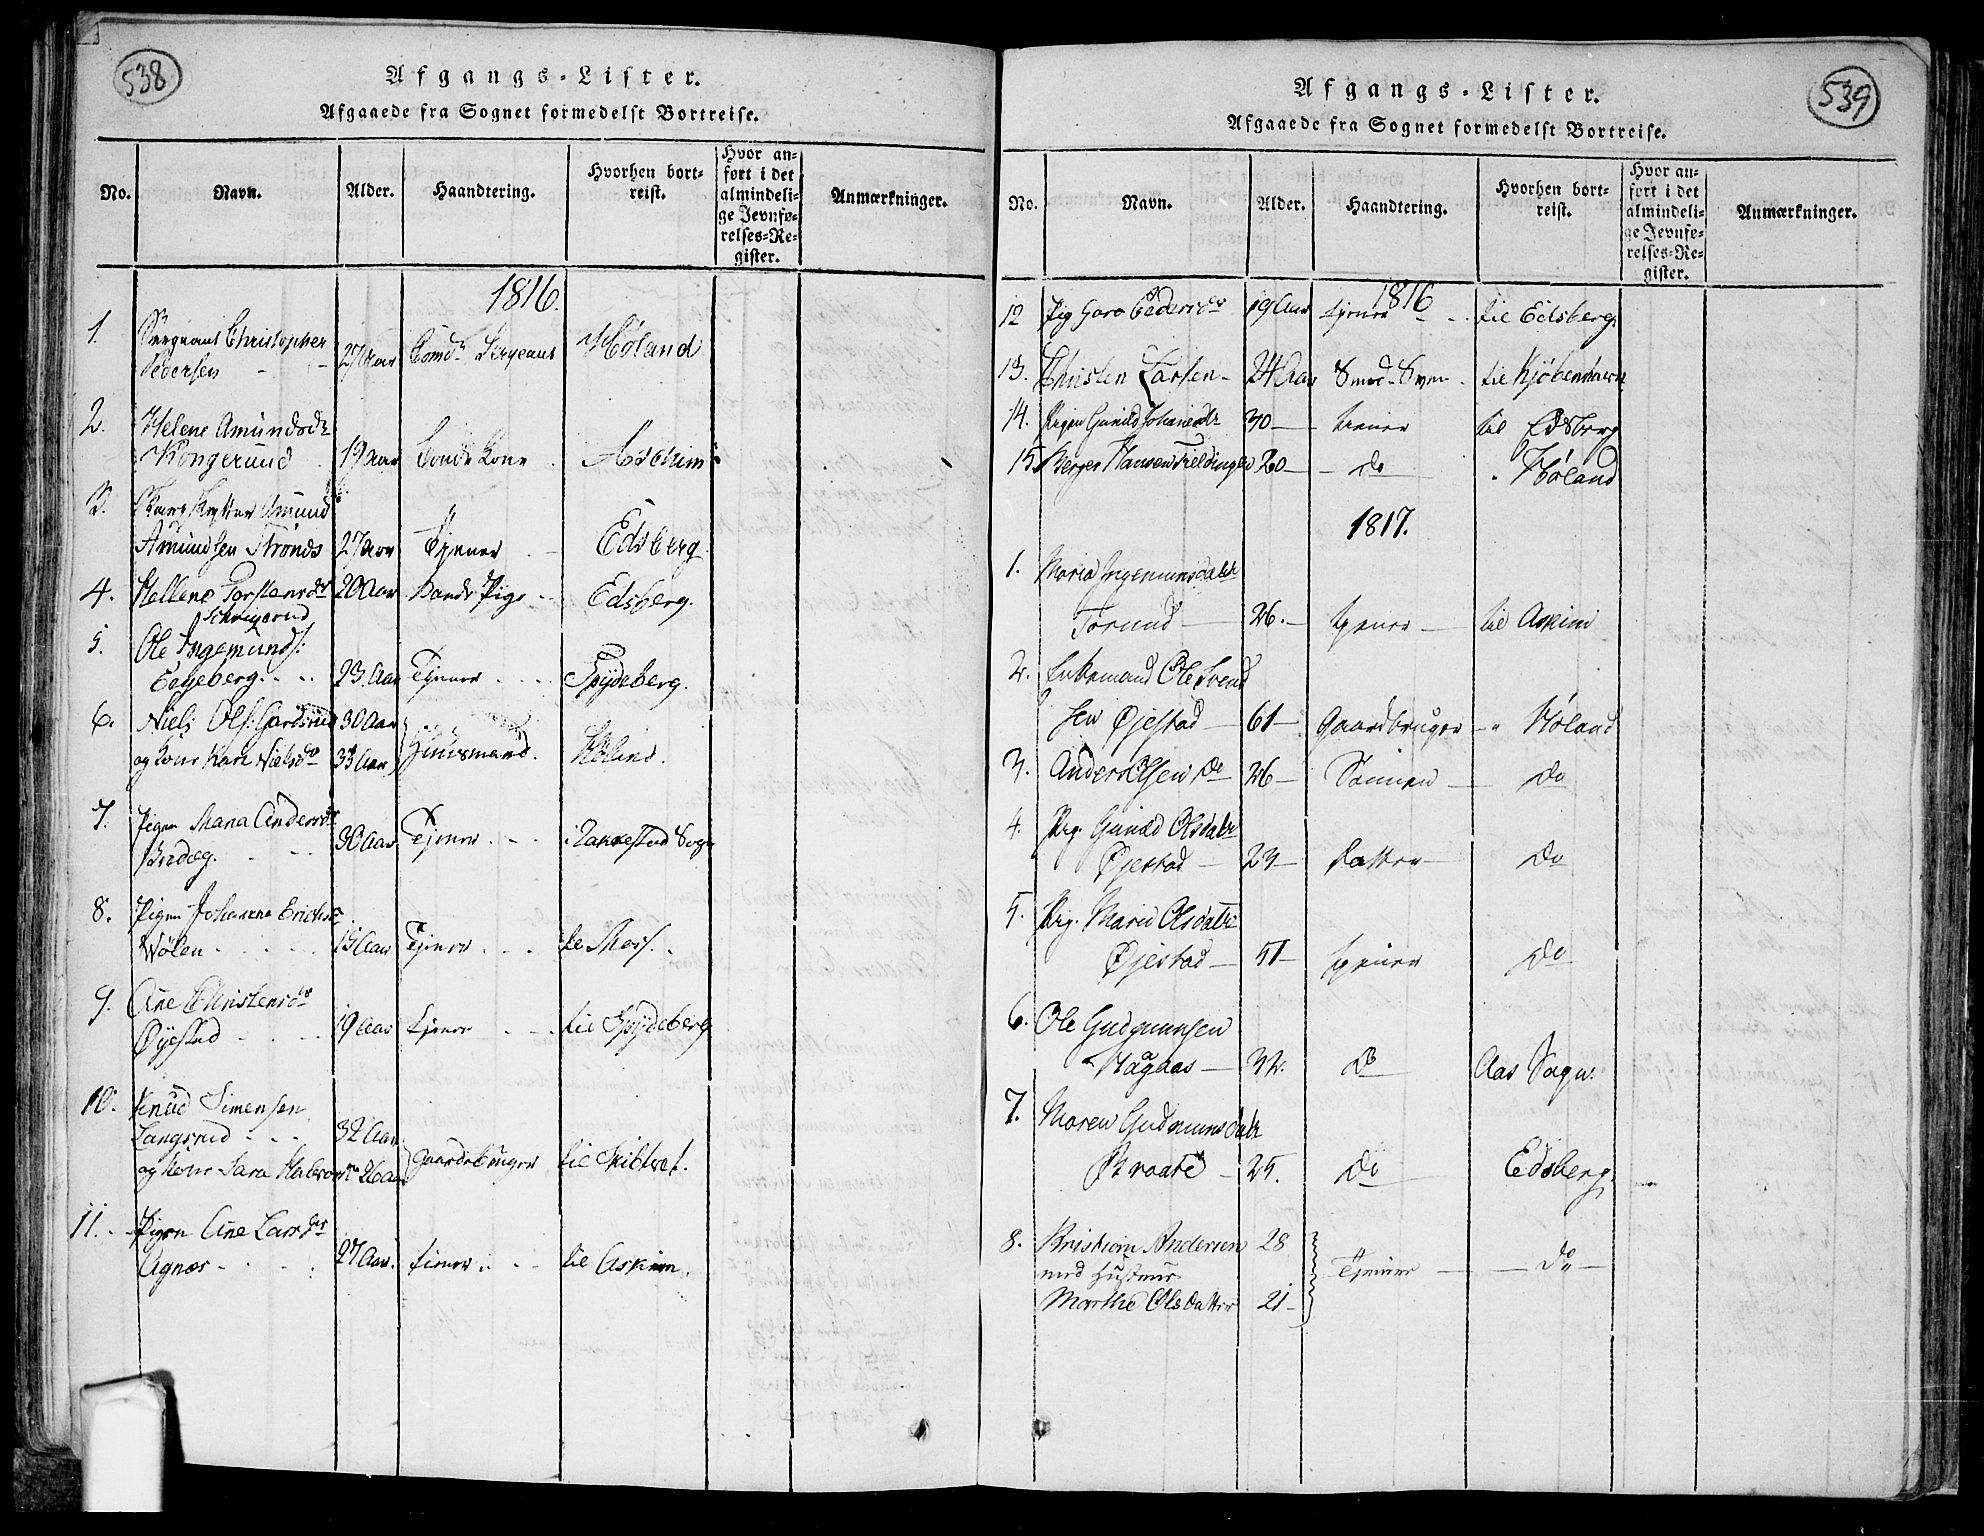 538
Afgangs-Lister.
Afgaaede fra Sognet formedelst Bortreise.
No. Navn. Alder. Haandtering. Hvorhen bortreist. Hvor anført i det almindelige Jevnførelses-Register. Anmærkninger.
1816.
1. Sergeant Christopher
Pedersen 27 Aar Sergeant Høland
2. Helene Amundsdr
Kongerud 19 Aar Kone Aschim
3. Amund
Amundsen Trønds 27 Aar Tjener Edsberg
4. Hellene Torstensdr 20 Aar Pige Edsberg.
5. Ole Ingemunds:
Eegeberg. 23. Aar Tjener Spydeberg.
6. Niels Ols: 30 Aar
og Kone Kari Nielsdr 33 Aar Huusmand. Høland.
7. Pigen Maria Andersdr
30 Aar Tjener Rakkestad Sogn
8. Pigen Johanne Erichsdr
Wølen 15 Aar Tjener til Moss.
9. Ane Christensdr
Øyestad 19 Aar tjener til Spydeberg
10. Knud Simensen
Langsrud 32 Aar
og Kone Sara 26 Aar Gaardbruger til Skibtvet.
11. Pigen Ane Larsdr
Agnæs 27 Aar. tiener til Askim.
539
Afgangs-Lister.
Afgaaede fra Sognet formedelst Bortreise.
No. Navn. Alder. Haandtering. Hvorhen bortreist. Hvor anført i det almindelige Jevnførelses-Register. Anmærkninger.
1816
12 Pig Pedersdr 19 Aar tjener til Edsberg.
13. Christen Larsen 24 Aar Smed-Svend til Kjøbenhavn
14. Pigen Gunild Johanesdtr 30 tiener til Edsberg
15. Berger Hansen Fieldingen 20 do Høland
1817.
1. Maria Ingemunsdatr
Torund 26. tjener til Askim
2. Enkemand Ole Svend
sen Øjestad 61 Gaardbruger Høland
3. Anders Olsen do 26 Sønnen do
4. Pig. Gunild Olsdatr
Øjestad 23 Datter do
5. Pig. Maria Olsdatr
Øjestad 51 tjener do
6. Ole Gudmunsen
Hagaas 32. do Aas Sogn.
7. Maren Gudmunsdatr
Braate 25. do Edsberg.
8. Kristian Andersen 28
med Hustrue Tjener do
Marthe Olsdatter 21